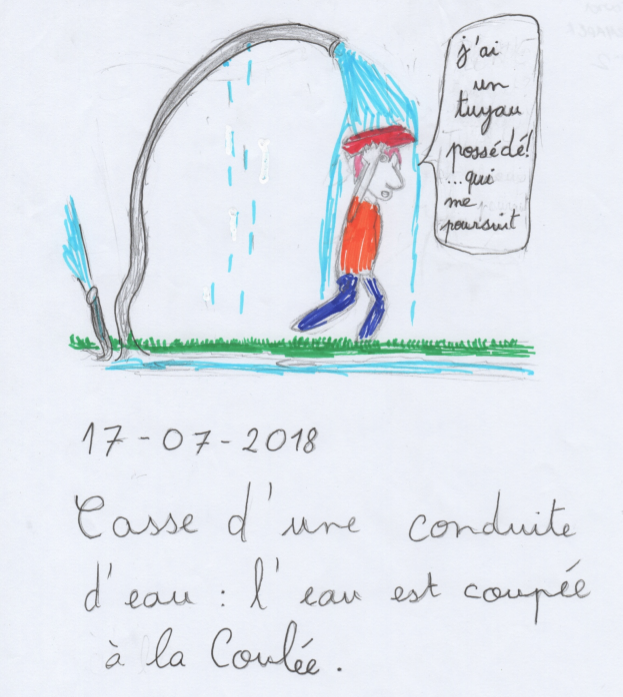 j'ai
un
tuyau
possédé!
...qui
me
poursuit
17-07-2018
Casse d'une conduite
d'eau : l'eau est coupée
à la Coulée.